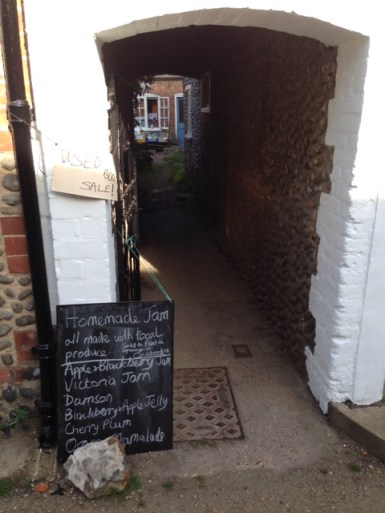 USED
BOOK
SALE!
Homemade Jam
all made with local
produce.
Apple & Blackberry Jam
Victoria Jam
Damson
Blackberry & Apple Jelly
Cherry Plum
Marmalade